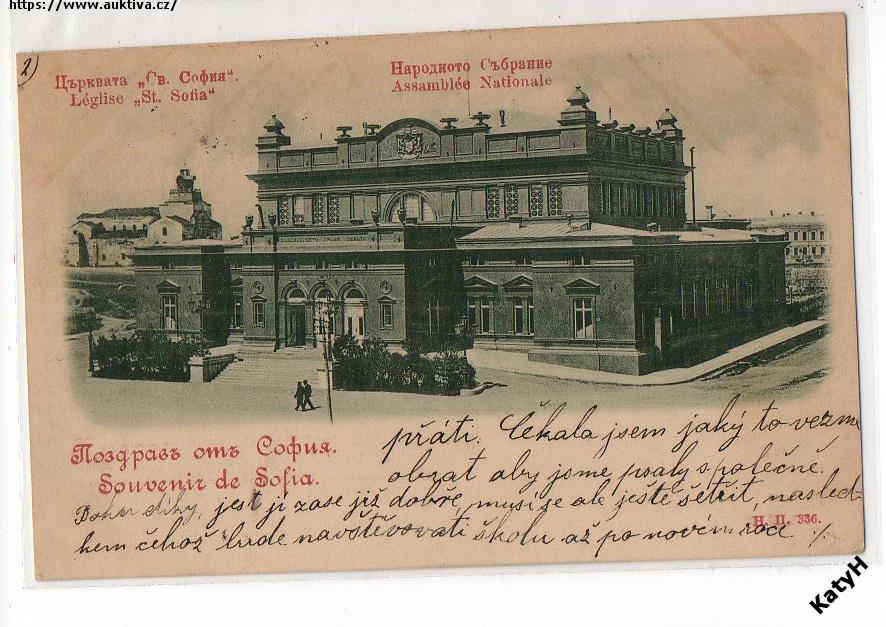 https://www.auktiva.cz/
2)
Църквата „Св. София“.
Léglise „St. Sofia“
Народното Събрание
Assamblée Nationale
Поздравъ отъ София.
Souvenir de Sofia.
přáti. Čekala jsem jaký to vezme
obrat aby jsme psaly společně.
Bohu díky, jest jí zase již dobře, musí se ale ještě šetřit, násled-
kem čehož bude navštěvovati školu až po novém roce ./.
Н. П. 336.
KatyH